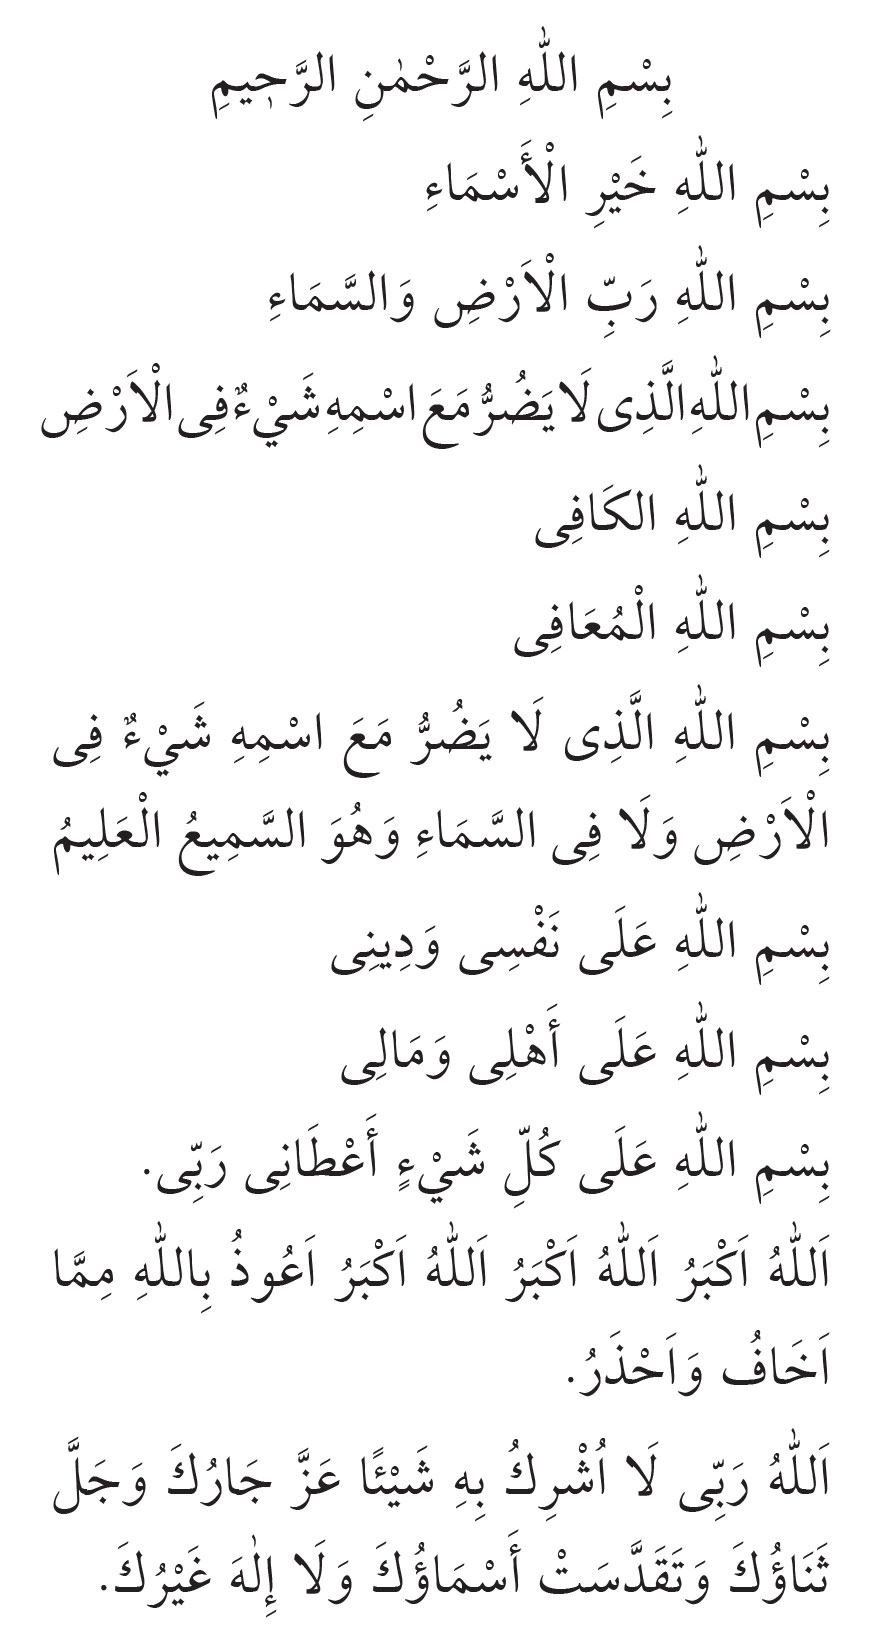 بِسْمِ اللّٰهِ الرَّحْمٰنِ الرَّحٖيمِ
بِسْمِ اللّٰهِ خَيْرِ الْأَسْمَاءِ
بِسْمِ اللّٰهِ رَبِّ الْاَرْضِ وَالسَّمَاءِ
بِسْمِ اللّٰهِ الَّذِى لَا يَضُرُّ مَعَ اسْمِهِ شَيْءٌ فِى الْاَرْضِ
بِسْمِ اللّٰهِ الكَافِى
بِسْمِ اللّٰهِ الْمُعَافِى
بِسْمِ اللّٰهِ الَّذِى لَا يَضُرُّ مَعَ اسْمِهِ شَيْءٌ فِى
الْاَرْضِ وَلَا فِى السَّمَاءِ وَهُوَ السَّمِيعُ الْعَلِيمُ
بِسْمِ اللّٰهِ عَلَى نَفْسِى وَدِينِى
بِسْمِ اللّٰهِ عَلَى أَهْلِى وَمَالِى
بِسْمِ اللّٰهِ عَلَى كُلِّ شَيْءٍ أَعْطَانِى رَبِّى.
اَللّٰهُ اَكْبَرُ اَللّٰهُ اَكْبَرُ اَللّٰهُ اَكْبَرُ اَعُوذُ بِاللّٰهِ مِمَّا
اَخَافُ وَاَحْذَرُ.
اَللّٰهُ رَبِّى لَا اُشْرِكُ بِهِ شَيْئًا عَزَّ جَارُكَ وَجَلَّ
ثَنَاؤُكَ وَتَقَدَّسَتْ أَسْمَاؤُكَ وَلَا إِلٰهَ غَيْرُكَ.